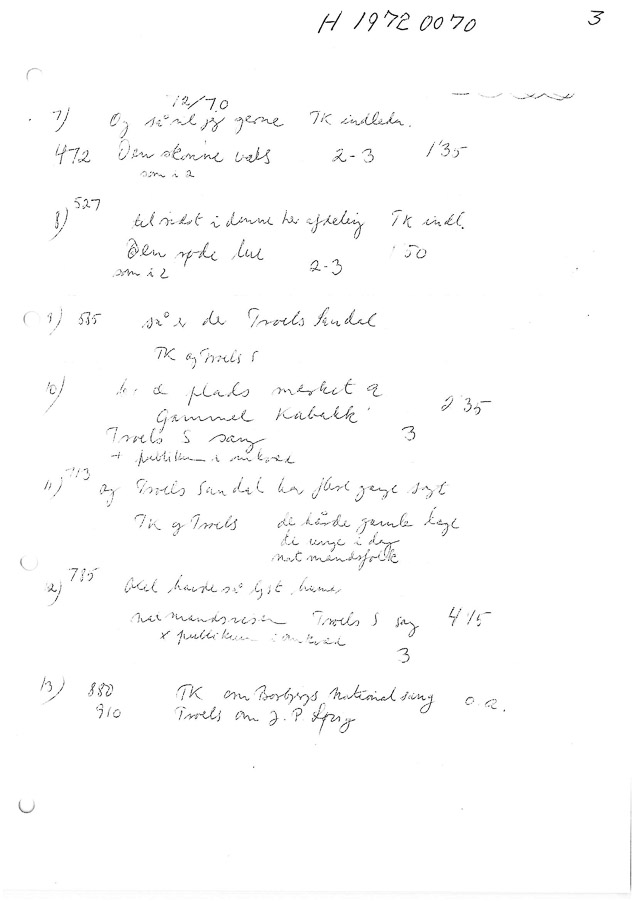 H 1972 0070 3
12/70
7) Og så vil jeg gerne TK indleder.
472 Den skønne vals 2-3 1'35
som i 2
8) 527 til sidst i denne her afdeling TK indl.
Den røde lue 1'50
som i 2 2-3
9) 585 så er der Troels Sandal
TK og Troels S
10) plads mærket 2'35
Gammel Kabakk'
Troels S sang 3
+ publikum i omkvæd
11) 713 og Troels Sandal har flere gange sagt
TK og Troels de hårde gamle dage
de unge i dag
natmandsfolk
12) 785 havde så lyst
natmandsvisen Troels S sang 4'15
+ publikum i omkvæd
3
13) 880 TK om Borbjergs Nationalsang o.a.
910 Troels om J. P.